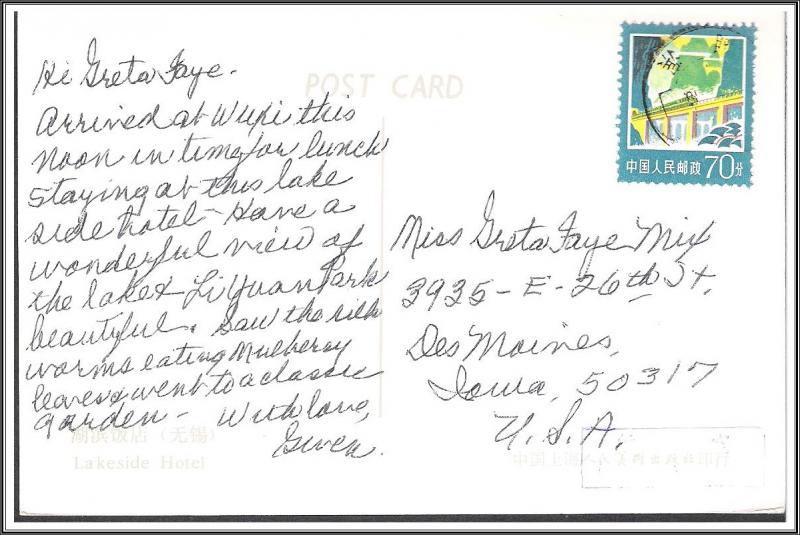 POST CARD
Hi Greta Faye.
Arrived at Wuxi this
noon in time for lunch
Staying at this lake
side hotel – Have a
wonderful view of
the lake & Li Yuan Park
beautiful. Saw the silk
worms eating Mulberry
leaves & went to a classic
garden – With love,
Gwen.
湖滨饭店（无锡）
Lakeside Hotel
中国人民邮政 70分
Miss Greta Faye Mix
3935 – E – 26th St.
Des Moines,
Iowa, 50317
U.S.A.
中国上海人民美術出版社印行